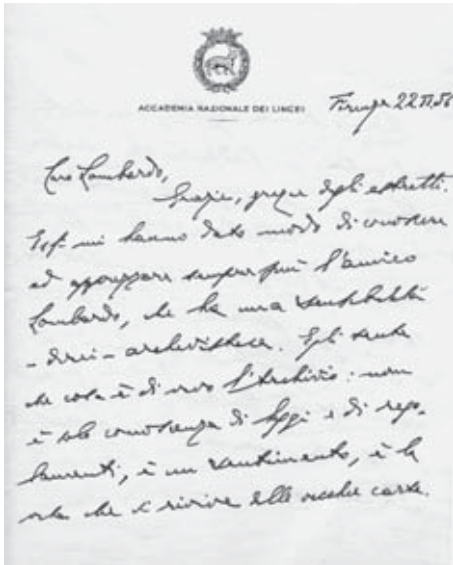 ACCADEMIA NAZIONALE DEI LINCEI
Firenze 22 II 56
Caro Lombardo,
Grazie, grazie degli estratti.
Essi mi hanno dato modo di conoscere
ed apprezzare sempre più l'amico
Lombardo, che ha una sensibilità
- direi - archivistica. Egli sente
che cosa è di vivo l'Archivio: non
è solo conoscenza di leggi e di rego-
lamenti, è un sentimento, è la
vita che si rivive alle vecchie carte.